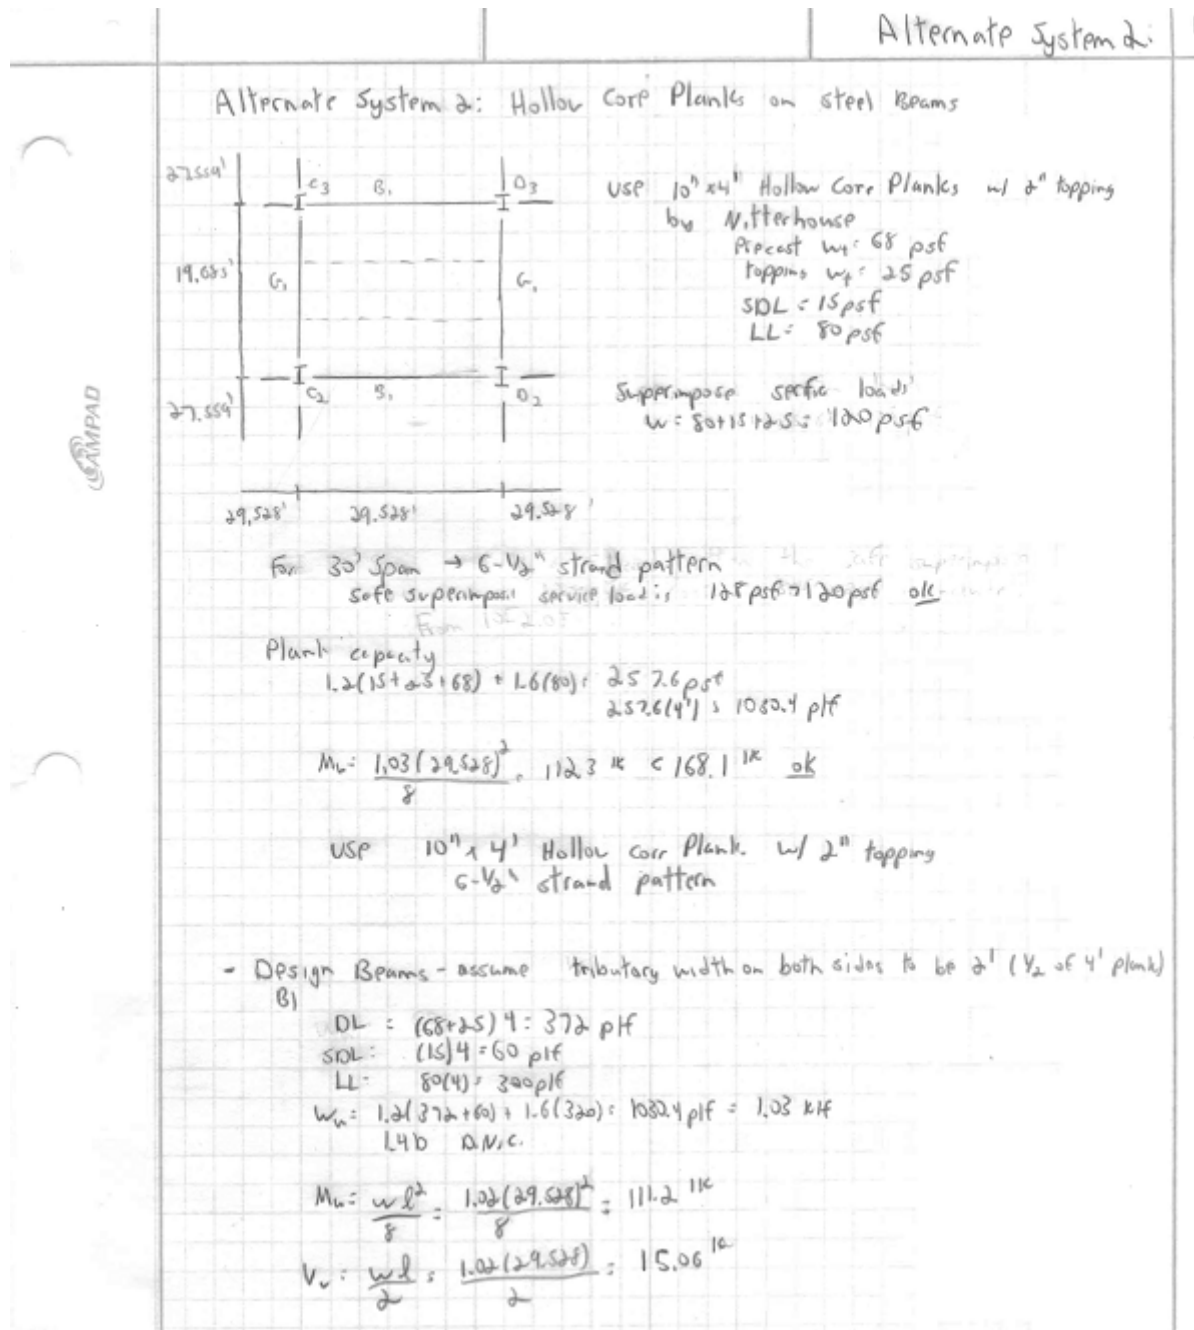 Alternate System 2:
Alternate System 2: Hollow Core Planks on Steel Beams
27.559'
C3 B1 D3
19.685'
G1 G1
C2 B1 D2
27.559'
29.528' 29.528' 29.528'
AMPAD
USE 10" x 4' Hollow Core Planks w/ 2" topping
by Nitterhouse
Precast wt: 68 psf
topping wt: 25 psf
SDL = 15 psf
LL = 80 psf
Superimpose service loads
w = 80+15+25 = 120 psf
For 30' Span → 6-1/2" strand pattern
safe superimpose service load is 128 psf > 120 psf ok
Plank capacity
1.2(15+25+68) + 1.6(80) = 257.6 psf
257.6(4') = 1030.4 plf
Mu = 1.03(29.528)²/8 = 112.3 'k < 168.1 'k ok
USE 10" x 4' Hollow Core Plank w/ 2" topping
6-1/2" strand pattern
- Design Beams - assume tributary width on both sides to be 2' (1/2 of 4' plank)
B1
DL = (68+25)4 = 372 plf
SDL = (15)4 = 60 plf
LL = 80(4) = 320 plf
Wu = 1.2(372+60) + 1.6(320) = 1030.4 plf = 1.03 klf
1.4D D.N.C.
Mu = wl²/8 = 1.02(29.528)²/8 = 111.2 'k
Vu = wl/2 = 1.02(29.528)/2 = 15.06 k